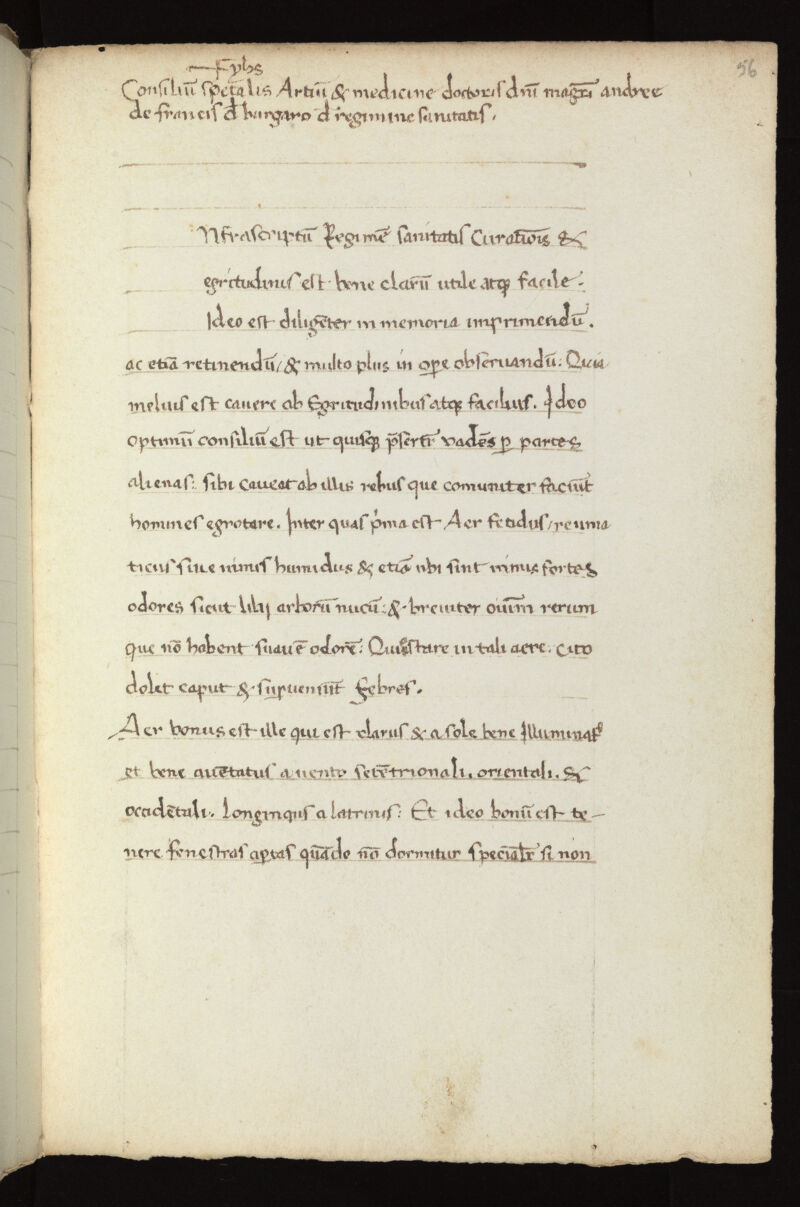 56
Consiliū spetālis Artiū & medicine doctoris dn̄i magr̄i andree
de francis d̄ bargaro d̄ regimine sanitatis.
Nfrascriptū Regimē sanitatis Curatiōis &
egritudinis est bene clarū utile atq; facile.
Ideo est diligēter in memoria imprimendū.
ac etiā retinendū/ & multo plus in oꝑe obseruandū. Quia
melius est cauere ab Egritudinibus atq; facilius. Ideo
optimū consiliū est ut quisq; p̄sertī vadēs ꝑ partes
alienas: sibi caueat ab illis rebus que comuniter faciūt
homines egrotare. Inter quas p̄ma est Aer fetidus/ reuma
ticus siue nimis humidus & etiā ubi sint nimis fortes
odores sicut lilij arborū nucū: & breuiter oīum rerum
que nō habent suauē odorē. Qui stare in tali aere. cito
dolet caput & supueniūt Febres.
Aer bonus est ille qui est clarus & a sole bene Illuminatꝰ
et bene auētatus a uento setētrionali. orientali. &
occidētali. longinqus a latrinis: Et ideo bonū est te-
nere fenestras aꝑtas quādo nō dormitur speciālr̄ si non